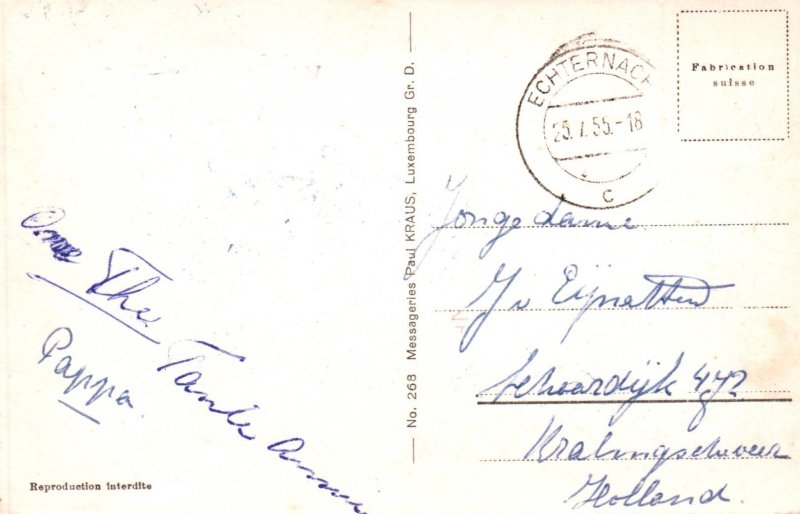 Ome Theo
Tante Annie
Pappa.
Reproduction interdite
No. 268 Messageries Paul KRAUS, Luxembourg Gr. D.
ECHTERNACH
25.7.55.-18
C
Fabrication
suisse
Jongedame
J v Eijnatten
Kralingscheveer
Holland.